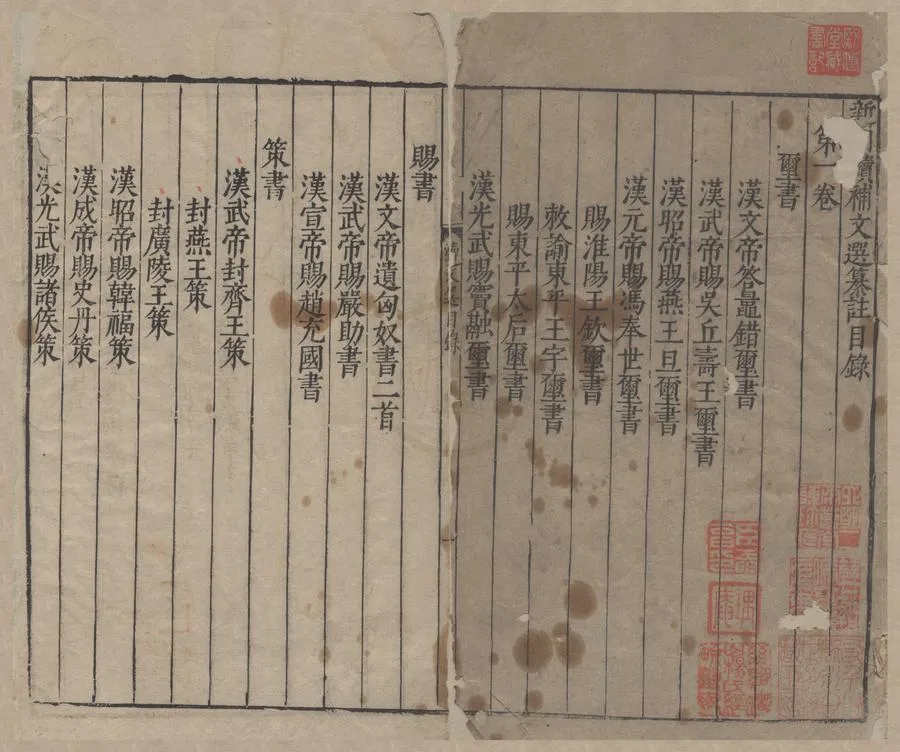 新刊續補文選纂註目錄
第一卷
璽書
漢文帝答鼂錯璽書
漢武帝賜吳丘壽王璽書
漢昭帝賜燕王旦璽書
漢元帝賜馮奉世璽書
賜淮陽王欽璽書
敕諭東平王宇璽書
賜東平太后璽書
漢光武賜竇融璽書
目錄
賜書
漢文帝遺匈奴書二首
漢武帝賜嚴助書
漢宣帝賜趙充國書
策書
漢武帝封齊王策
封燕王策
封廣陵王策
漢昭帝賜韓福策
漢成帝賜史丹策
漢光武賜諸侯策